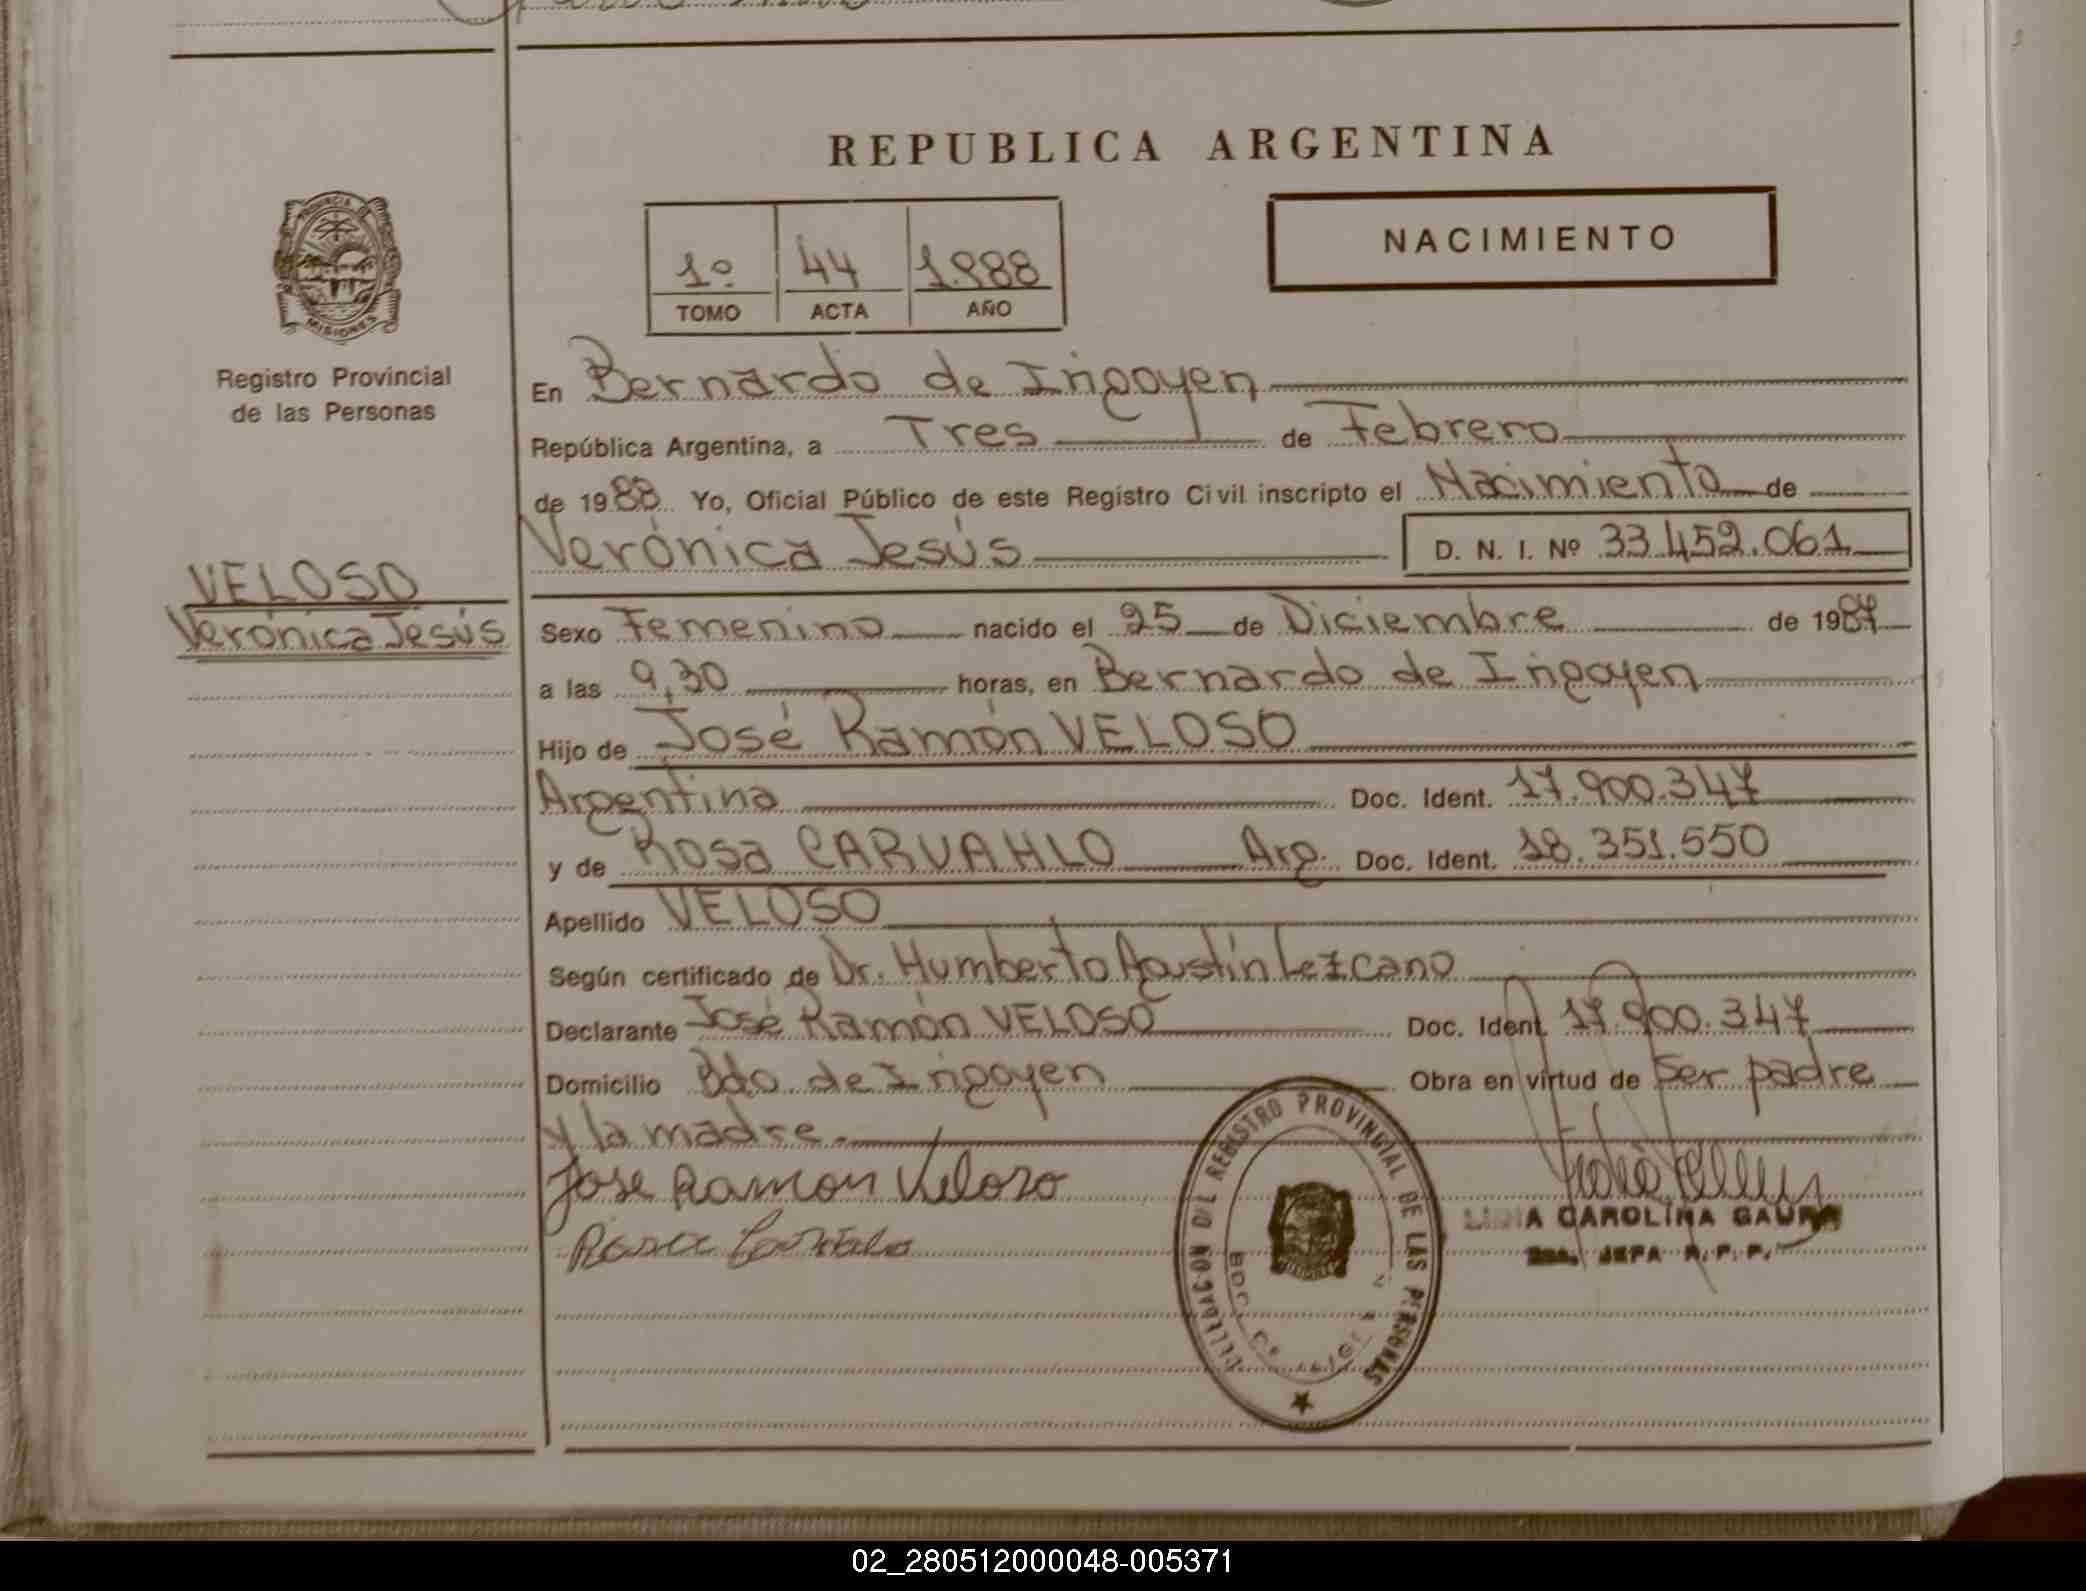 REPUBLICA ARGENTINA
PROVINCIA DE
MISIONES
Registro Provincial
de las Personas
1º 44 1.988
TOMO ACTA AÑO
NACIMIENTO
En Bernardo de Irigoyen
República Argentina, a Tres de Febrero
de 1988 Yo, Oficial Público de este Registro Civil inscripto el Nacimiento de
Verónica Jesús D. N. I. Nº 33.452.061
VELOSO
Verónica Jesús
Sexo Femenino nacido el 25 de Diciembre de 1987
a las 9,30 horas, en Bernardo de Irigoyen
Hijo de José Ramón VELOSO
Argentina Doc. Ident. 17.900.347
y de Rosa CARVAHLO Arg. Doc. Ident. 18.351.550
Apellido VELOSO
Según certificado de Dr. Humberto Agustín Lezcano
Declarante José Ramón VELOSO Doc. Ident. 17.900.347
Domicilio Bdo de Irigoyen Obra en virtud de Ser padre
y la madre.
Jose Ramon Veloso
Rosa
DELEGACION DEL REGISTRO PROVINCIAL DE LAS PERSONAS
CAROLINA
JEFA R. P. P.
02_280512000048-005371